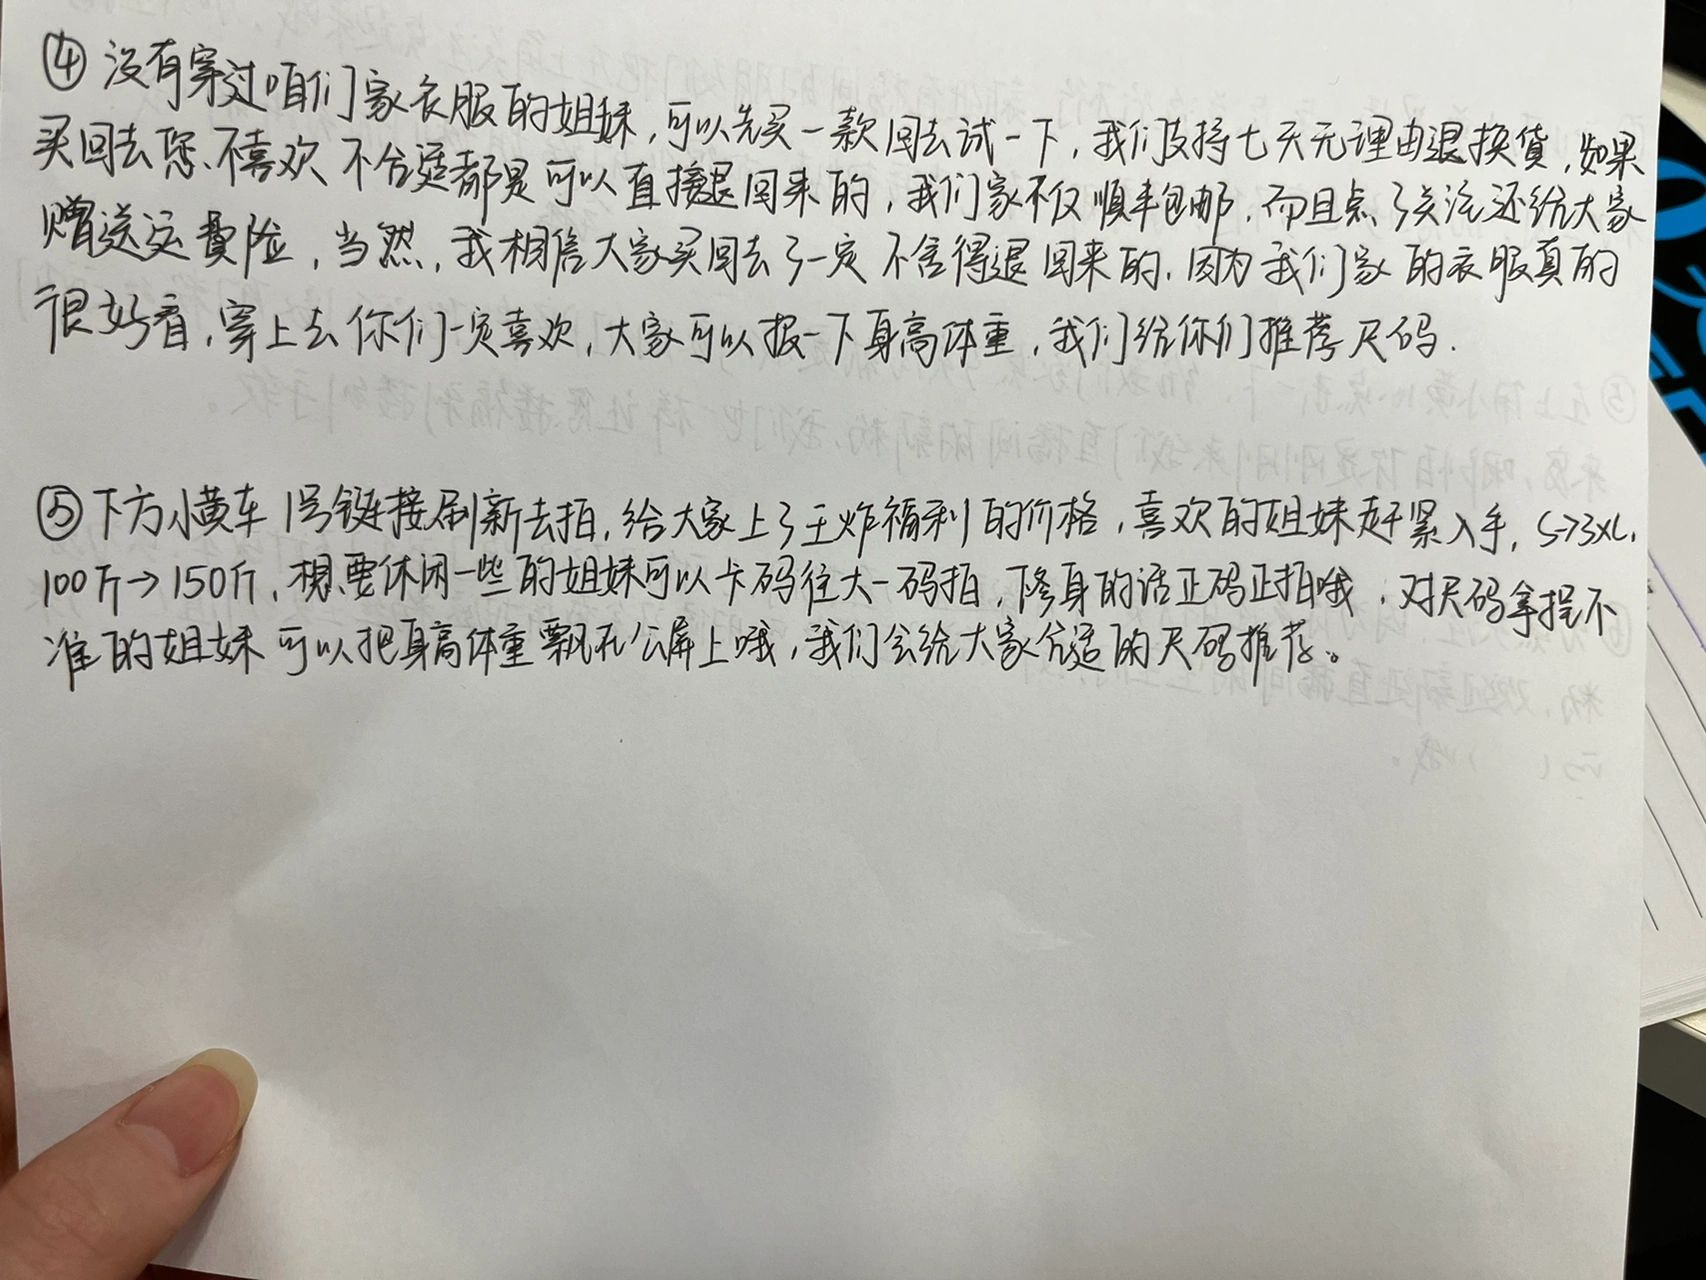 ④ 没有穿过咱们家衣服的姐妹,可以先买一款回去试一下,我们支持七天无理由退换货,如果
买回去您、不喜欢 不合适都是可以直接退回来的,我们家不仅顺丰包邮,而且点了关注还给大家
赠送运费险,当然,我相信大家买回去了一定不舍得退回来的,因为我们家的衣服真的
很好看,穿上去你们一定喜欢,大家可以报一下身高体重,我们给你们推荐尺码.
⑤ 下方小黄车 1号链接刷新去拍,给大家上了王炸福利的价格,喜欢的姐妹赶紧入手, S→3XL,
100斤→150斤,想要休闲一些的姐妹可以卡码往大一码拍,修身的话正码正拍哦,对尺码拿捏不
准的姐妹可以把身高体重飘在公屏上哦,我们会给大家合适的尺码推荐。